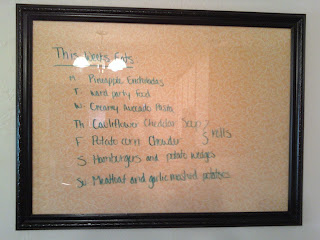 This Week's Eats
M Pineapple Enchiladas
T ward party food
W Creamy Avocado Pasta
Th Cauliflower Cheddar Soup
F Potato corn Chowder } rolls
S Hamburgers and potato wedges
Su Meatloaf and garlic mashed potatoes